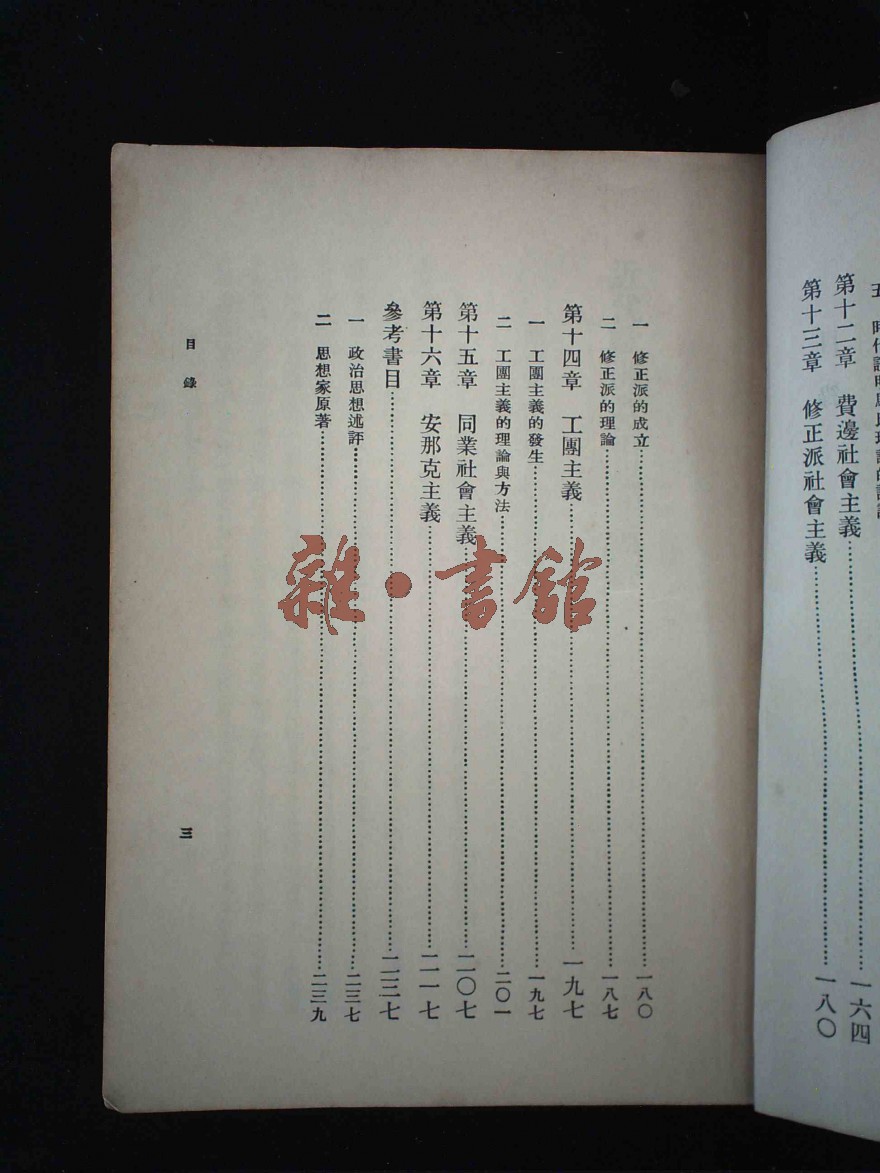 第十二章 費邊社會主義……一六四
第十三章 修正派社會主義……一八〇
一 修正派的成立……一八〇
二 修正派的理論……一八七
第十四章 工團主義……一九七
一 工團主義的發生……一九七
二 工團主義的理論與方法……二〇一
第十五章 同業社會主義……二〇七
第十六章 安那克主義……二一七
參考書目……二三七
一 政治思想述評……二三七
二 思想家原著……二三九
目錄
三
雜·書館